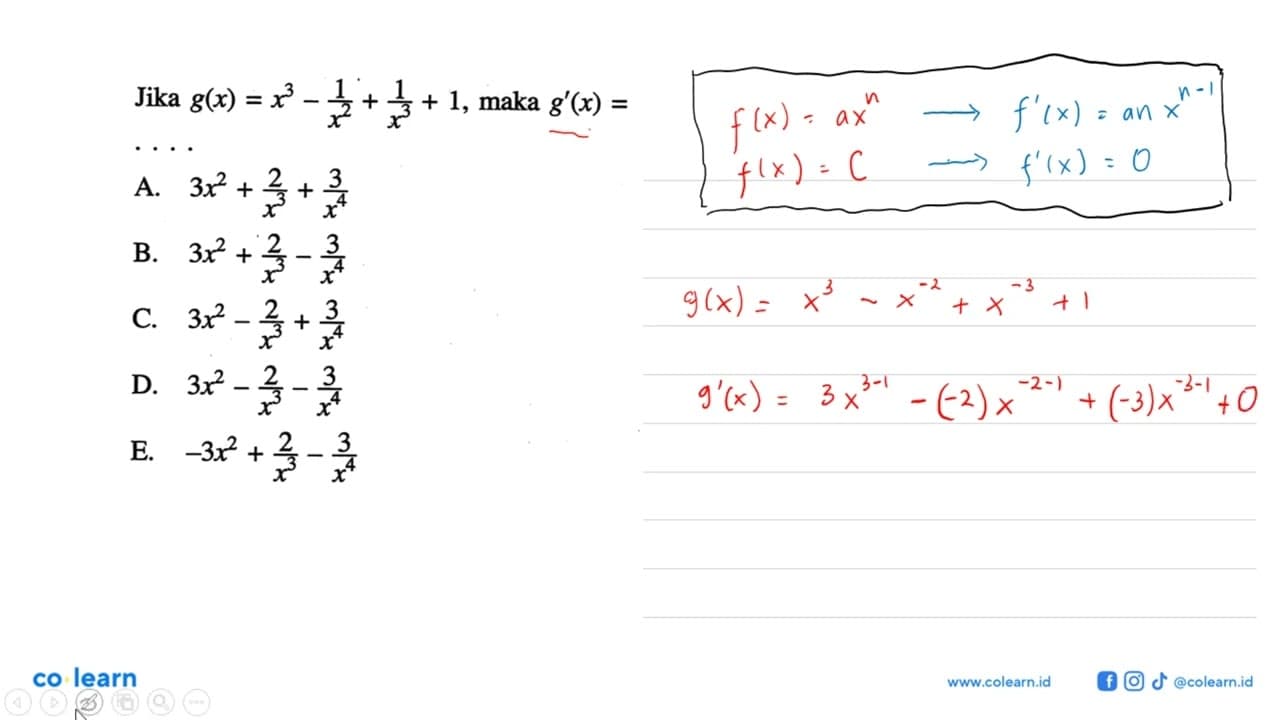 Jika g(x) = x³ − 1/x² + 1/x³ + 1, maka g′(x) =
. . . .
A. 3x² + 2/x³ + 3/x⁴
B. 3x² + 2/x³ − 3/x⁴
C. 3x² − 2/x³ + 3/x⁴
D. 3x² − 2/x³ − 3/x⁴
E. −3x² + 2/x³ − 3/x⁴
f(x) = axⁿ → f'(x) = an xⁿ⁻¹
f(x) = C → f'(x) = 0
g(x) = x³ − x⁻² + x⁻³ + 1
g'(x) = 3x³⁻¹ − (−2)x⁻²⁻¹ + (−3)x⁻³⁻¹ + 0
co learn
www.colearn.id
@colearn.id